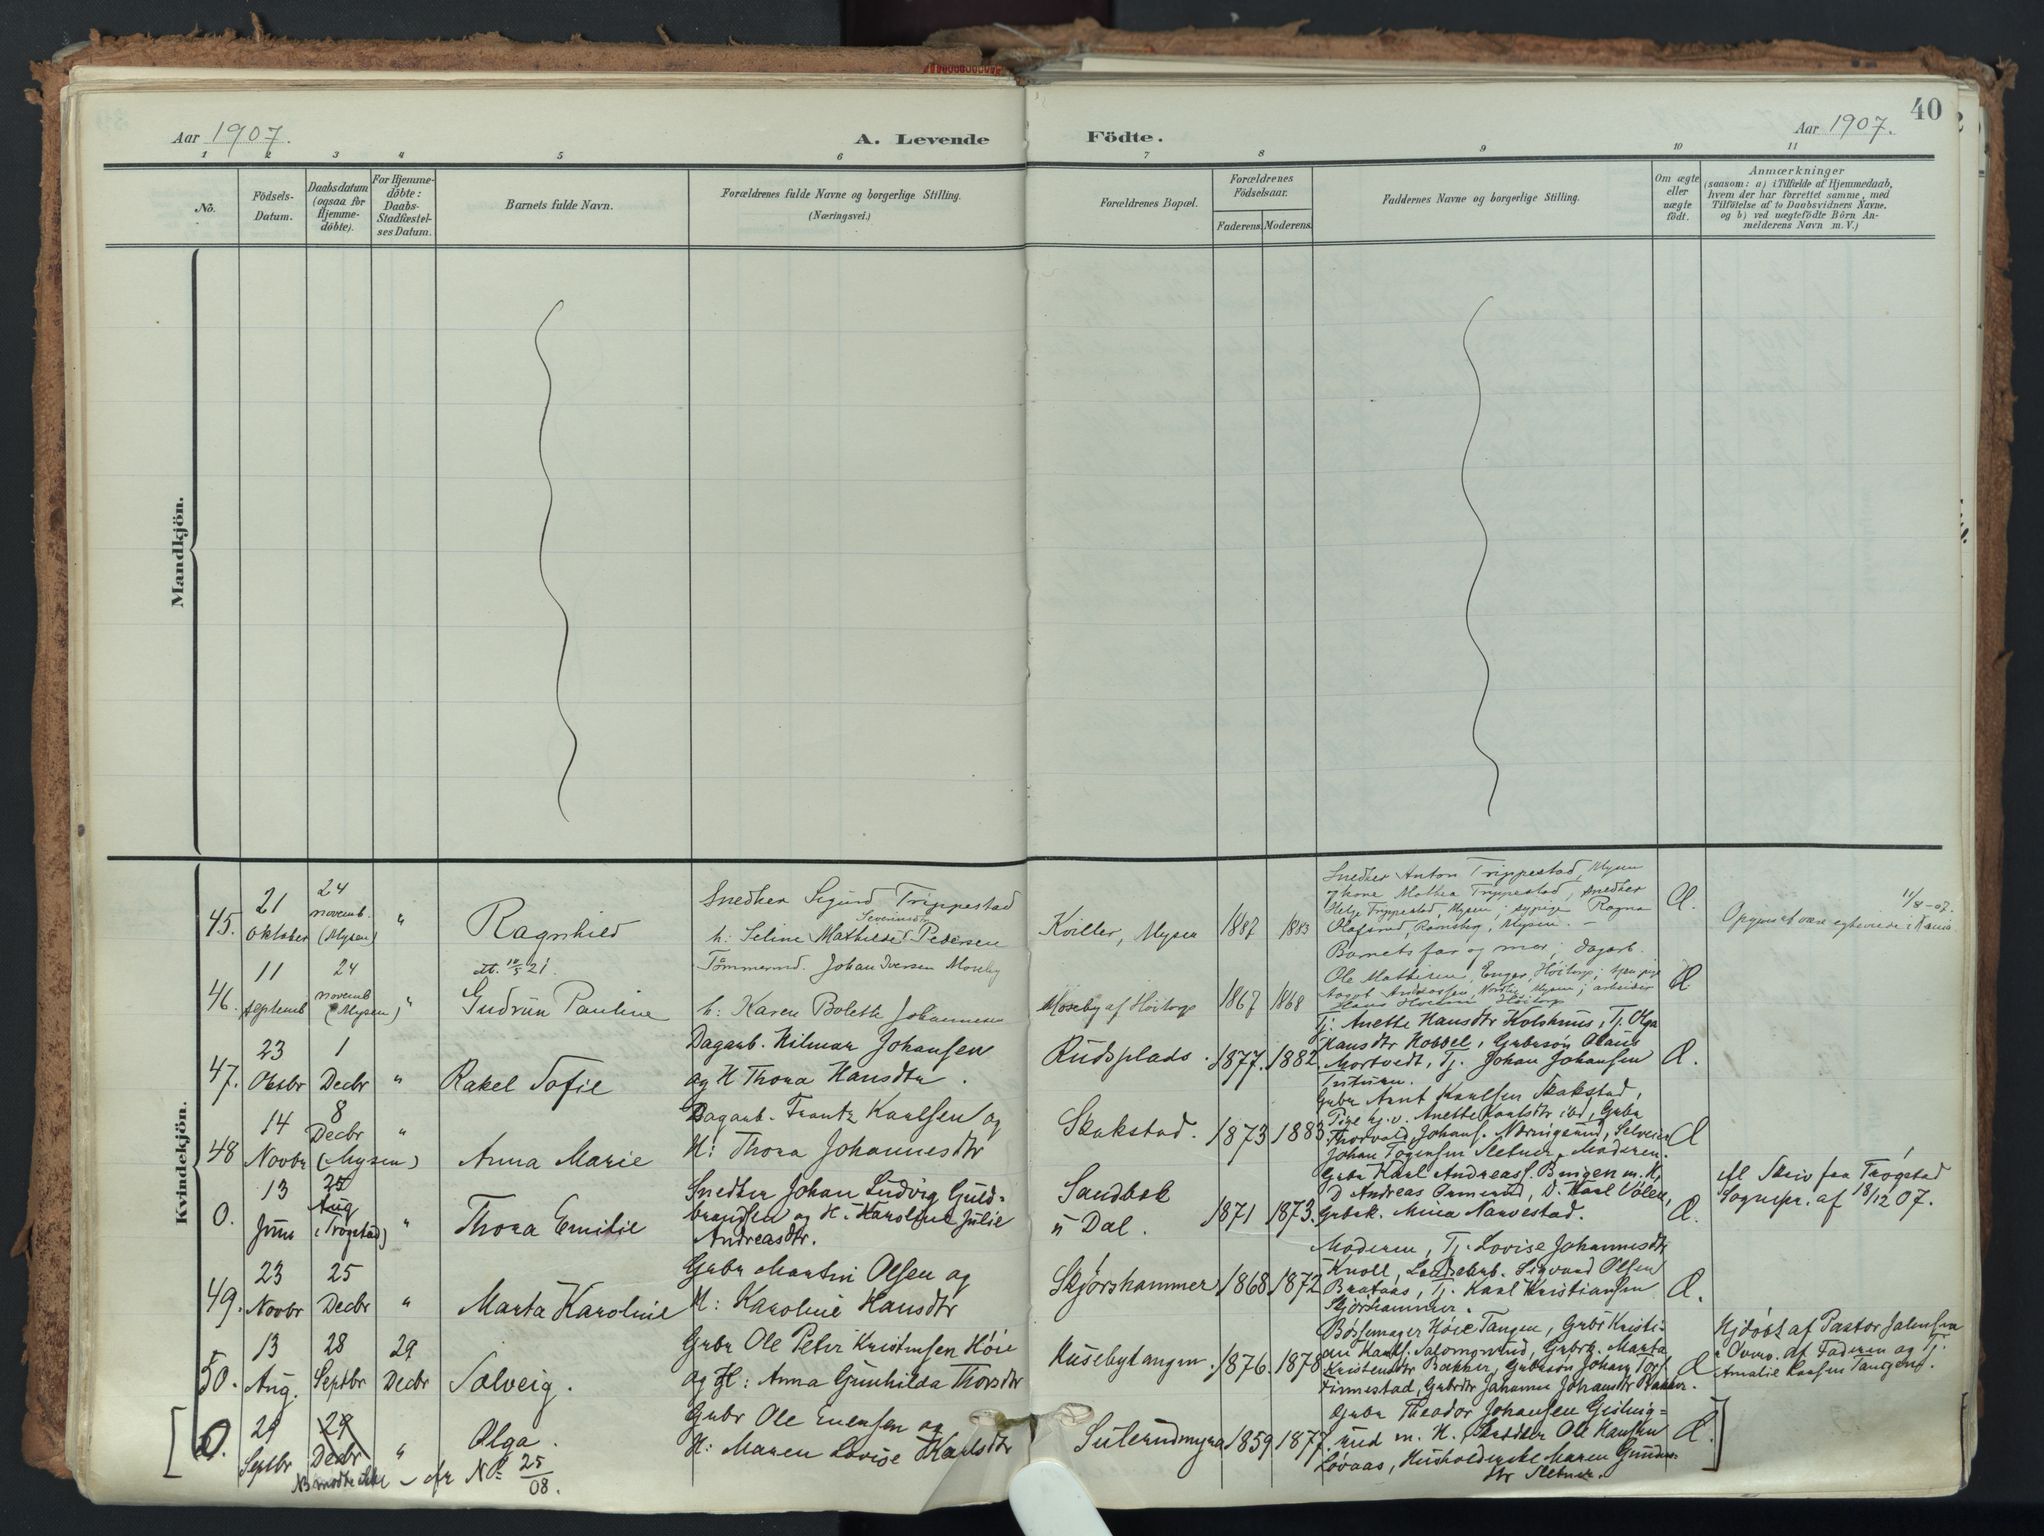 Aar 1907.
A. Levende Födte.
Aar 1907.
40
1 2 3 4 5 6 7 8 9 10 11
No.
Födsels-Datum.
Daabsdatum (ogsaa for Hjemme-döbte).
For Hjemme-döbte: Daabs-Stadfæstel-ses Datum.
Barnets fulde Navn.
Forældrenes fulde Navne og borgerlige Stilling.
(Næringsvei.)
Forældrenes Bopæl.
Forældrenes Födselsaar.
Faderens.
Moderens.
Faddernes Navne og borgerlige Stilling.
Om ægte eller uægte födt.
Anmærkninger
(saasom: a) i Tilfælde af Hjemmedaab,
hvem der har forrettet samme, med
Tilföielse af to Daabsvidners Navne,
og b) ved uægtefödte Börn An-
melderens Navn m. V.)
Mandkjön.
Kvindekjön.
45.
21 Oktober
24 novemb. (Mysen)
"
Ragnhild
Snedker Sigurd Trippestad
Severinsdtr
h: Seline Mathilde Pedersen
Kviller, Mysen
1887
1883
Snedker Anton Trippestad, Mysen
og kone Mathea Trippestad, snedker
Helge Trippestad, Mysen, sypige Ragna
Olafsrud, Mysen. –
Æ.
11/8-07.
46.
11 septemb
24 novemb (Mysen)
"
att. 10/5 21.
Gudrun Pauline
Tömmermd. Johan Iversen Moseby
h: Karen Bolette Johannesen
Moseby af Höitorp
1867
1868
Barnets far og mor; dagarb.
Ole Mathisen, Enger, Höitorp; tjenpige
Mysen; arbeider
Höitorp
Æ.
47.
23 Oktbr
1 Decbr
"
Rakel Sofie
Dagarb. Hilmar Johansen
og H Thora Hansdtr.
Rudsplads.
1877.
1882.
Tj: Anette Hansdtr Kolshus, Tj. Olga
Hansdtr Kobbel, Gubrsön Olaus
Mortvedt, Tj. Johan Johansen
Æ.
48
14 Novbr
8 Decbr (Mysen)
"
Anna Marie
Dagarb. Frantz Karlsen og
H: Thora Johannesdtr
Skakstad.
1873
1883
Gubr Arnt Karlsen Skakstad,
Pige hj. v. Anette Karlsdtr ibd, Gubr
Thorvald Johans. Næringsrud, Selveier
Johan Sletner, Moderen.
Æ
0.
13 Juni
25 Aug (Trögstad)
"
Thora Emilie
Snedker Johan Ludvig Guld-
brandsen og H. Karoline Julie
Andreasdtr.
Sandbek
u Dal.
1871
1873.
Gubr Karl Andreass. Bingen m. H,
D Andreas, D. Karl Völen,
Gubrk. Mina Narvestad.
Æ.
Efl Skriv fra Trøgstad
Sognepr. af 18/12 07.
49.
23 Novbr
25 Decbr
"
Marta Karoline
Gubr Martin Olsen og
H: Karoline Hansdtr
Skjørshammer
1868
1872
Moderen, Tj. Lovise Johannesdtr
Knoll, Sigvard Olsen
Brataas, Tj. Karl Kristiansen
Skjørshammer.
Æ.
50.
13 Aug.
28 Septbr
29 Decbr
Solveig.
Gubr Ole Peter Kristensen Höie
og H: Anna Gunhilda Thorsdtr
Husebytangen.
1876.
1878
Bøssemager Höie Tangen, Gubr Kristi-
an Karls. Salomonrud, Gubrk. Marta
Kristensdtr Bakker, Gubrsön Johan
Finnestad, Gubrdtr Johanne Johansdtr Bakker.
Æ
Hjdøbt af Pastor Jalensen
i Overv. af Faderen og Tj.
Amalie Larsen Tangen.
0.
29 Septbr
29 Decbr
"
Olga.
Gubr Ole Evensen og
H: Maren Lovise Karlsdtr
Suterudmyra
1859
1877.
Gubr Theodor Johansen Geiteig-
rud m. H. Snedker Ole Hansen
Lövaas, Husholderske Maren Gunder-
dtr Sletner.
Æ.
NB mødte ikke – cfr No 25/08.